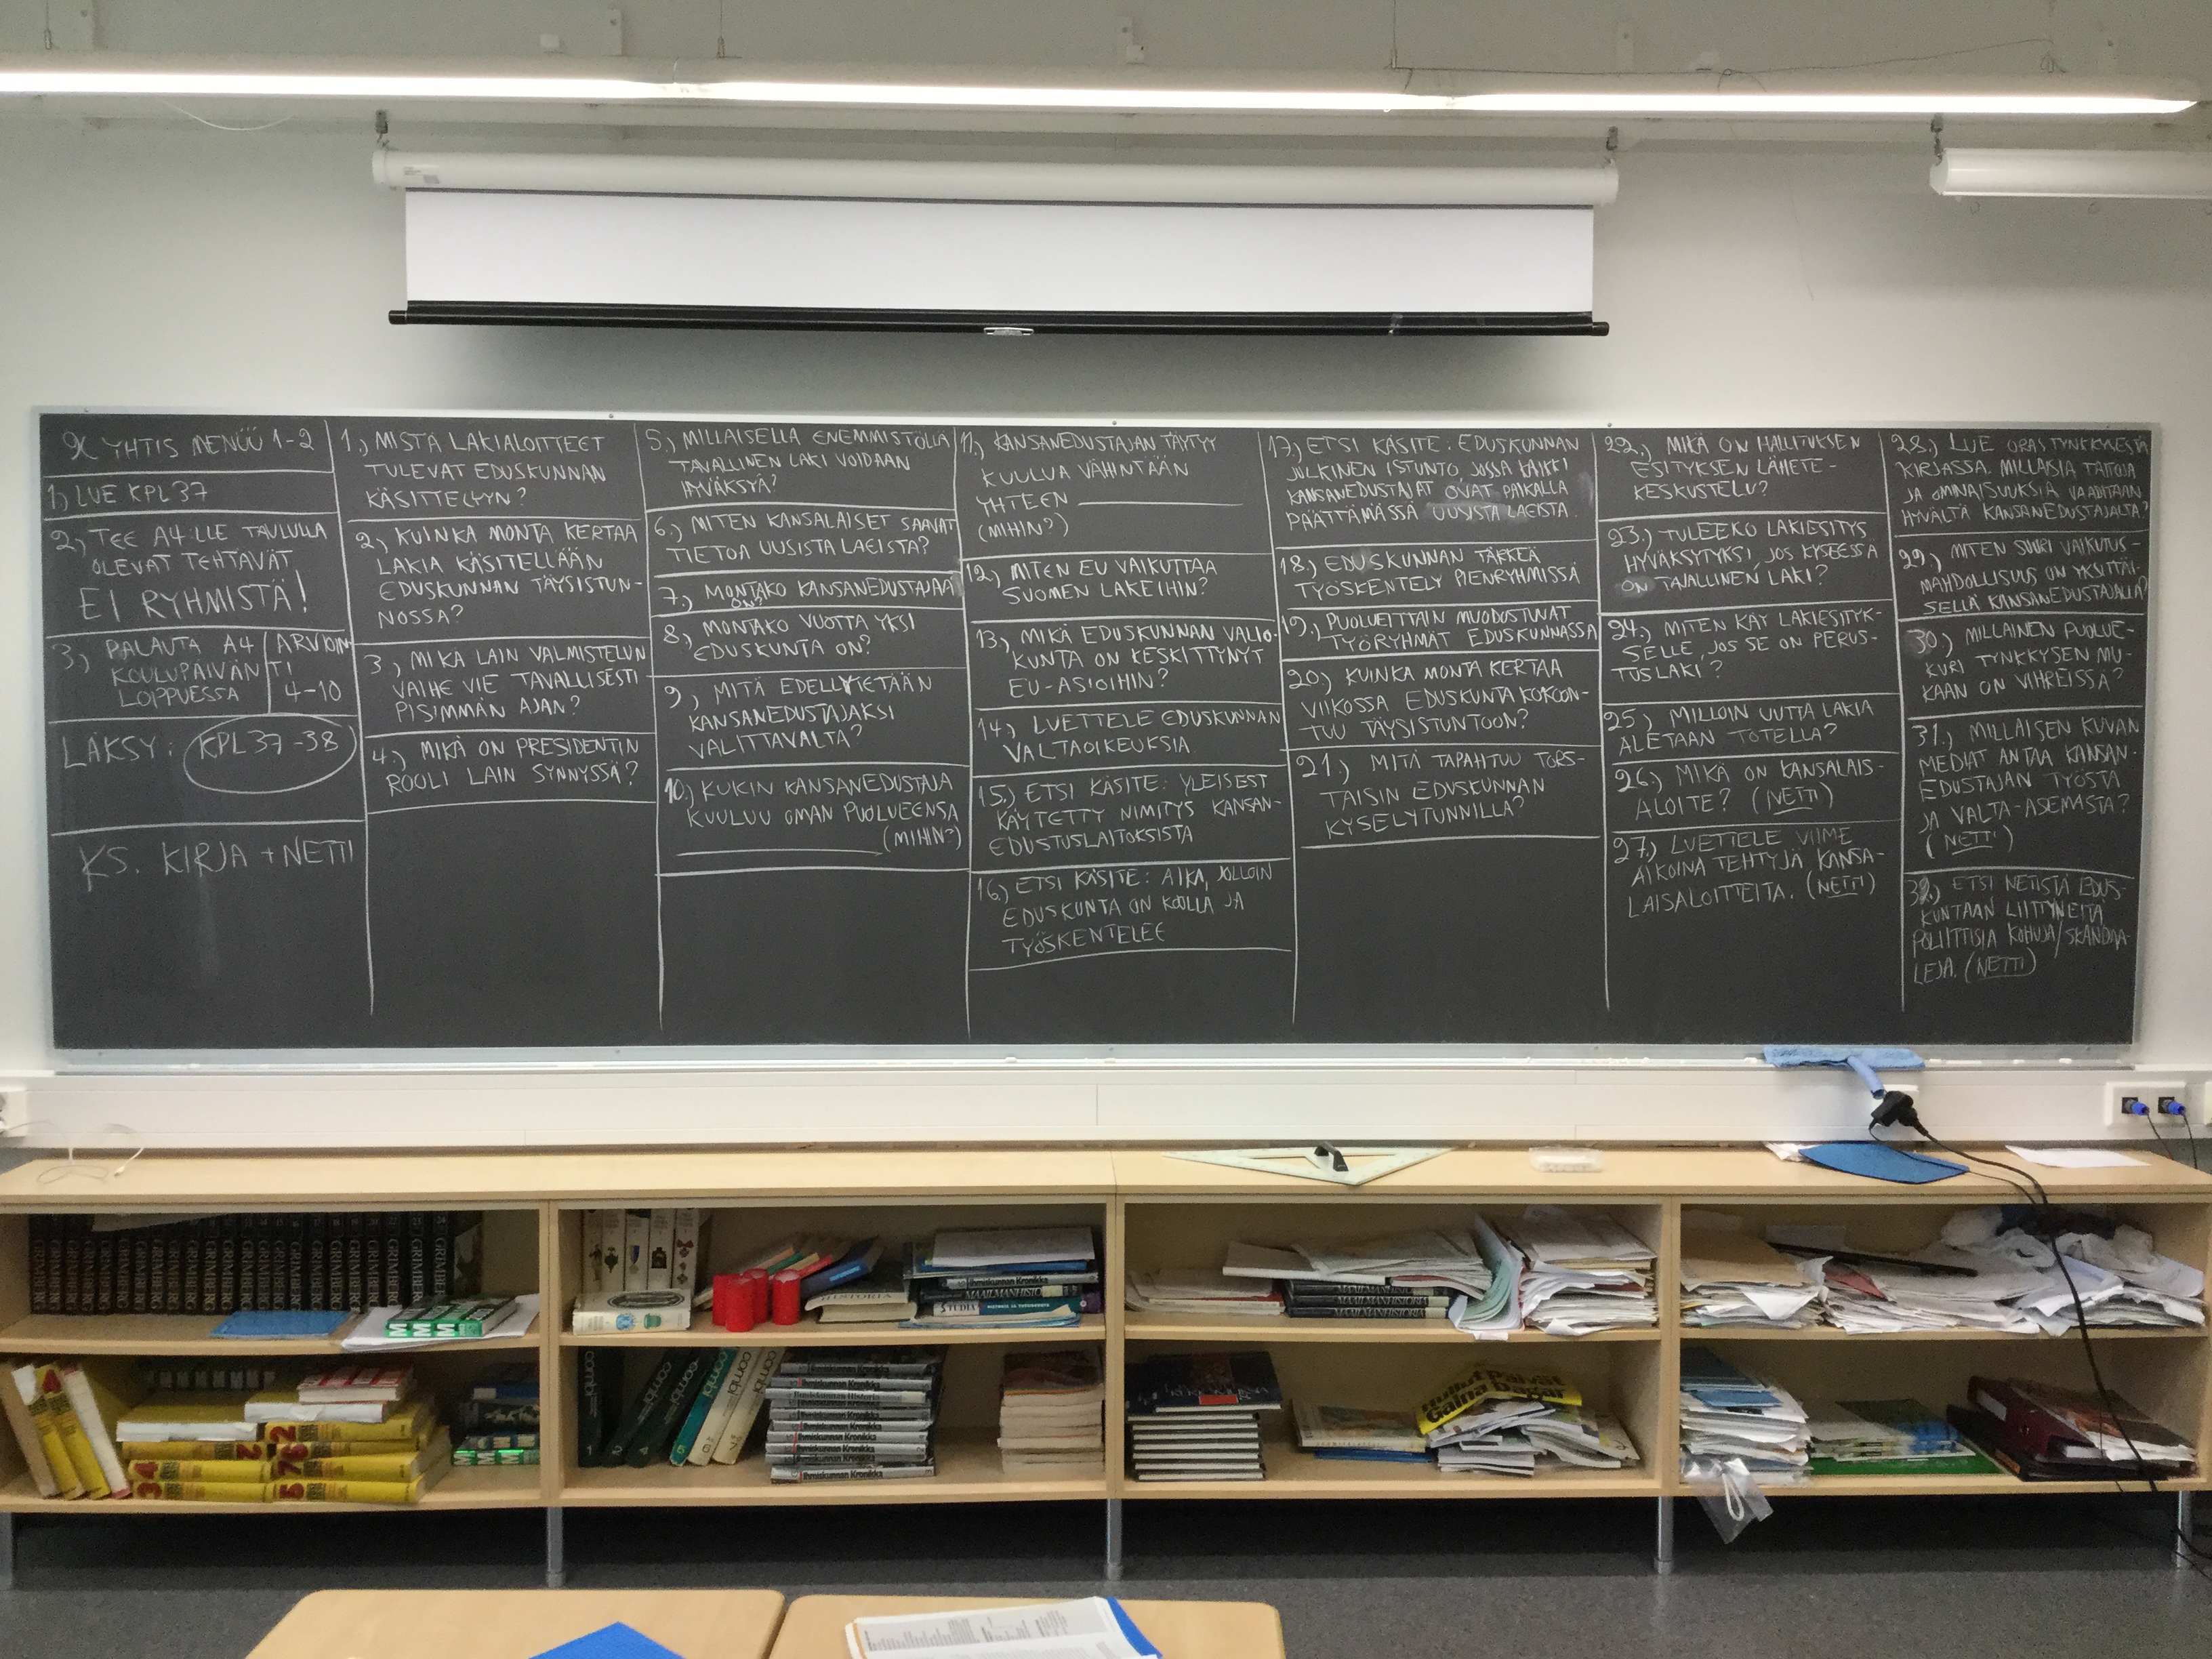 9X YHTIS MENÜÜ 1-2
1.) LUE KPL 37
2.) TEE A4:LLE TAULULLA
OLEVAT TEHTÄVÄT
EI RYHMISTÄ!
3.) PALAUTA A4
KOULUPÄIVÄN
LOPPUESSA
ARVIOIN-
TI
4-10
LÄKSY: KPL 37-38
KS. KIRJA + NETTI
1.) MISTÄ LAKIALOITTEET
TULEVAT EDUSKUNNAN
KÄSITTELYYN?
2.) KUINKA MONTA KERTAA
LAKIA KÄSITELLÄÄN
EDUSKUNNAN TÄYSISTUN-
NOSSA?
3.) MIKÄ LAIN VALMISTELUN
VAIHE VIE TAVALLISESTI
PISIMMÄN AJAN?
4.) MIKÄ ON PRESIDENTIN
ROOLI LAIN SYNNYSSÄ?
5.) MILLAISELLA ENEMMISTÖLLÄ
TAVALLINEN LAKI VOIDAAN
HYVÄKSYÄ?
6.) MITEN KANSALAISET SAAVAT
TIETOA UUSISTA LAEISTA?
7.) MONTAKO KANSANEDUSTAJAA
ON?
8.) MONTAKO VUOTTA YKSI
EDUSKUNTA ON?
9.) MITÄ EDELLYTETÄÄN
KANSANEDUSTAJAKSI
VALITTAVALTA?
10.) KUKIN KANSANEDUSTAJA
KUULUU OMAN PUOLUEENSA
(MIHIN?)
11.) KANSANEDUSTAJAN TÄYTYY
KUULUA VÄHINTÄÄN
YHTEEN
(MIHIN?)
12.) MITEN EU VAIKUTTAA
SUOMEN LAKEIHIN?
13.) MIKÄ EDUSKUNNAN VALIO-
KUNTA ON KESKITTYNYT
EU-ASIOIHIN?
14.) LUETTELE EDUSKUNNAN
VALTAOIKEUKSIA
15.) ETSI KÄSITE: YLEISEST
KÄYTETTY NIMITYS KANSAN-
EDUSTUSLAITOKSISTA
16.) ETSI KÄSITE: AIKA, JOLLOIN
EDUSKUNTA ON KOOLLA JA
TYÖSKENTELEE
17.) ETSI KÄSITE: EDUSKUNNAN
JULKINEN ISTUNTO, JOSSA KAIKKI
KANSANEDUSTAJAT OVAT PAIKALLA
PÄÄTTÄMÄSSÄ UUSISTA LAEISTA.
18.) EDUSKUNNAN TÄRKEÄ
TYÖSKENTELY PIENRYHMISSÄ
19.) PUOLUEITTAIN MUODOSTUNAT
TYÖRYHMÄT EDUSKUNNASSA
20.) KUINKA MONTA KERTAA
VIIKOSSA EDUSKUNTA KOKOON-
TUU TÄYSISTUNTOON?
21.) MITÄ TAPAHTUU TORS-
TAISIN EDUSKUNNAN
KYSELYTUNNILLA?
22.) MIKÄ ON HALLITUKSEN
ESITYKSEN LÄHETE-
KESKUSTELU?
23.) TULEEKO LAKIESITYS
HYVÄKSYTYKSI, JOS KYSEESSÄ
ON TAVALLINEN LAKI?
24.) MITEN KÄY LAKIESITYK-
SELLE, JOS SE ON PERUS-
TUSLAKI?
25.) MILLOIN UUTTA LAKIA
ALETAAN TOTELLA?
26.) MIKÄ ON KANSALAIS-
ALOITE? (NETTI)
27.) LUETTELE VIIME
AIKOINA TEHTYJÄ KANSA-
LAISALOITTEITA. (NETTI)
28.) LUE ORAS TYNKKYSESTÄ
KIRJASSA. MILLAISIA TAITOJA
JA OMINAISUUKSIA VAADITAAN
HYVÄLTÄ KANSANEDUSTAJALTA?
29.) MITEN SUURI VAIKUTUS-
MAHDOLLISUUS ON YKSITTÄI-
SELLÄ KANSANEDUSTAJALLA?
30.) MILLAINEN PUOLUE-
KURI TYNKKYSEN MU-
KAAN ON VIHREISSÄ?
31.) MILLAISEN KUVAN
MEDIAT ANTAA KANSAN-
EDUSTAJAN TYÖSTÄ
JA VALTA-ASEMASTA?
(NETTI)
32.) ETSI NETISTÄ EDUS-
KUNTAAN LIITTYNEITÄ
POLIITTISIA KOHUJA/SKANDAA-
LEJA. (NETTI)
GRIMBERG
HISTORIA
Ihmiskunnan Kronikka
MAAILMANHISTORIA
STUDIA
MAAILMANHISTORIA
MAAILMANHISTORIA
combi
Ihmiskunnan Kronikka
Ihmiskunnan Historia
Ihmiskunnan Kronikka
Hullut Päivät
Galna Dagar